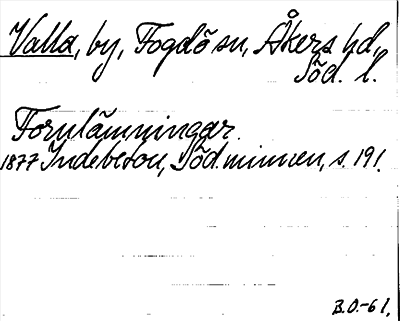 Valla, by, Fogdö sn, Åkers hd,
Söd. l.
Fornlämningar.
1877 Indebetou, Söd. minnen, s. 191.
B.O.-61.